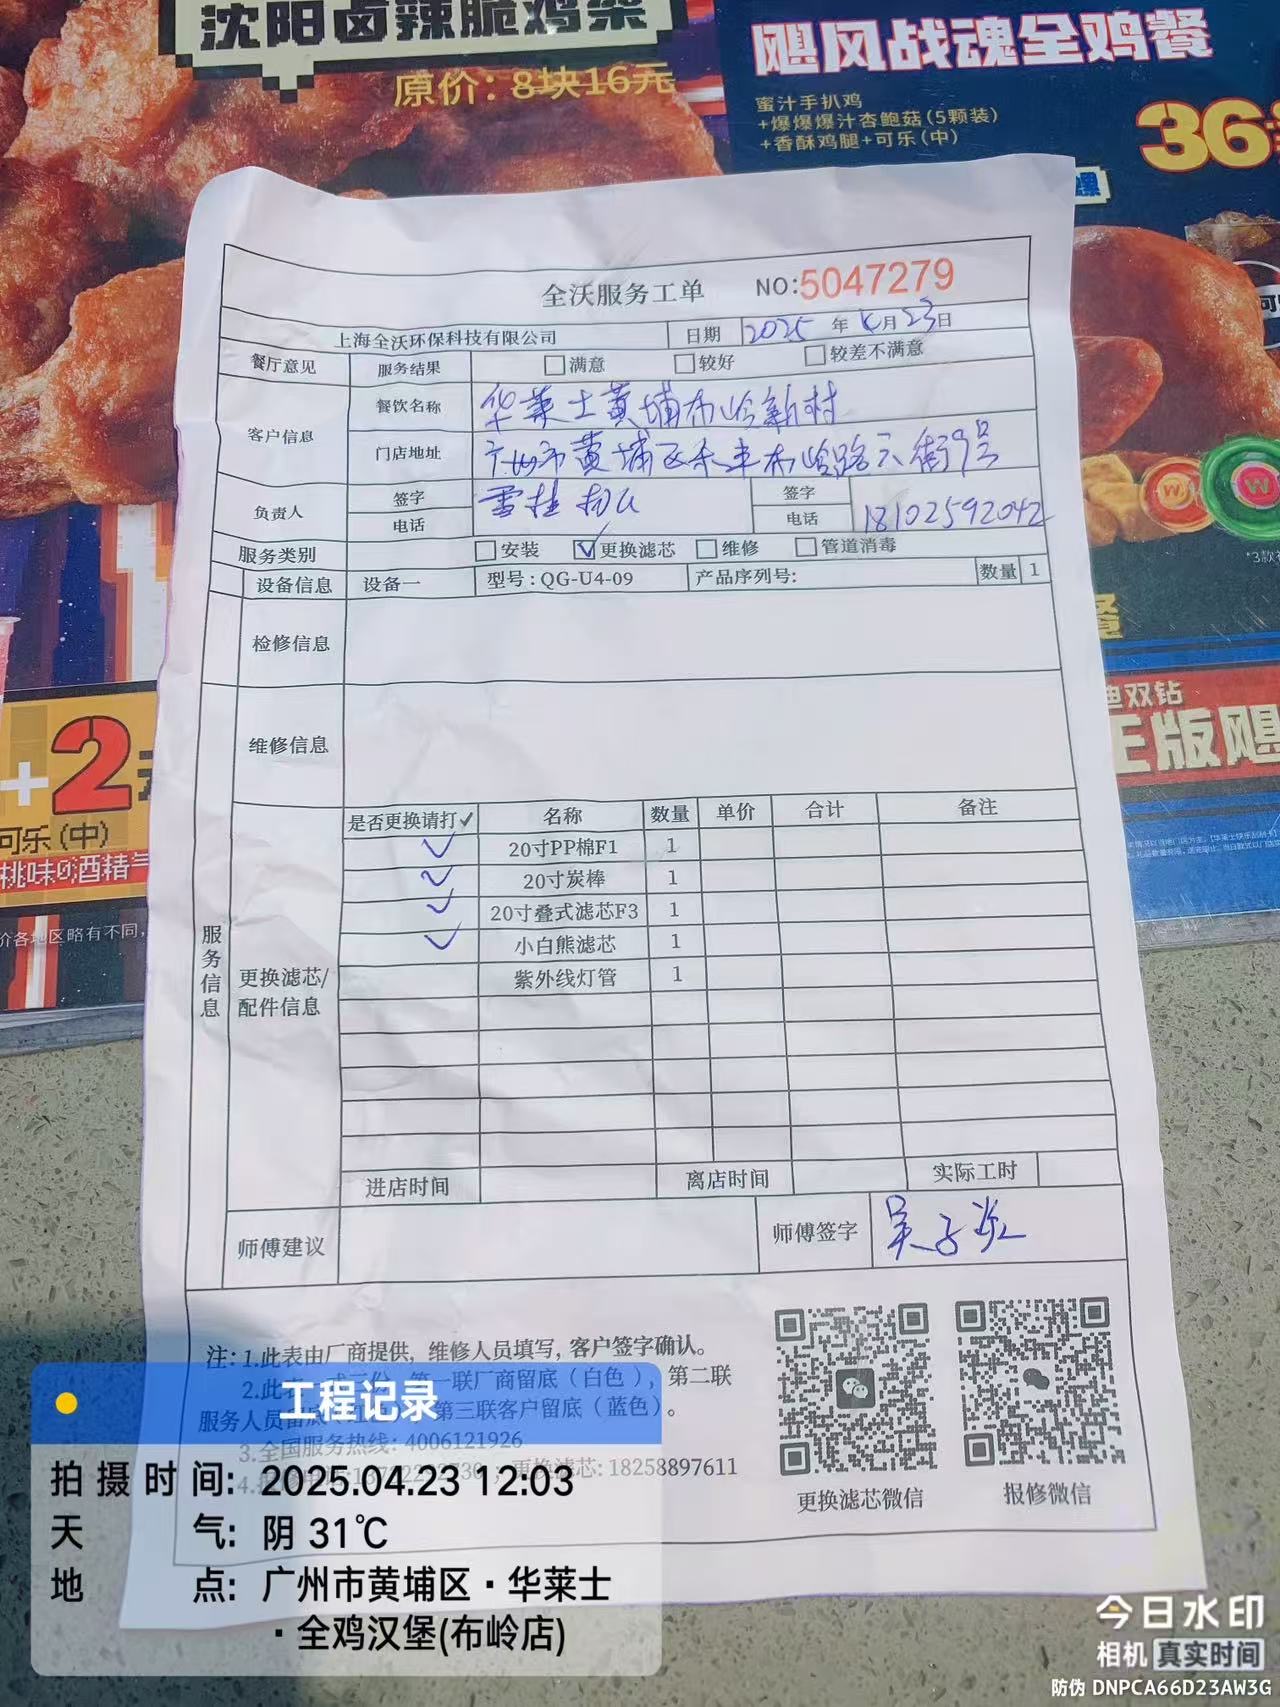 沈阳卤辣脆鸡架
原价：8块16元
飓风战魂全鸡餐
蜜汁手扒鸡
+爆爆爆汁杏鲍菇(5颗装)
+香酥鸡腿+可乐(中)
36
全沃服务工单 NO:5047279
上海全沃环保科技有限公司 日期 2025 年 4月 23日
餐厅意见 服务结果 满意 较好 较差不满意
客户信息 餐饮名称 华莱士黄埔布岭新村
门店地址 广州市黄埔区禾丰布岭路六街9号
负责人 签字 雷桂 签字
电话 电话 18102592042
服务类别 安装 ✓更换滤芯 维修 管道消毒
设备信息 设备一 型号：QG-U4-09 产品序列号： 数量 1
检修信息
维修信息
服务信息
更换滤芯/配件信息
是否更换请打✓ 名称 数量 单价 合计 备注
✓ 20寸PP棉F1 1
✓ 20寸炭棒 1
✓ 20寸叠式滤芯F3 1
✓ 小白熊滤芯 1
紫外线灯管 1
进店时间 离店时间 实际工时
师傅建议 师傅签字 吴子
注：1.此表由厂商提供，维修人员填写，客户签字确认。
2.此表 第一联厂商留底（白色），第二联
服务人员留底 第三联客户留底（蓝色）。
3.全国服务热线：4006121926
更换滤芯：18258897611
更换滤芯微信 报修微信
+2
可乐(中)
迪双钻
正版飓
工程记录
拍摄时间：2025.04.23 12:03
天气：阴 31℃
地点：广州市黄埔区·华莱士
·全鸡汉堡(布岭店)
今日水印
相机 真实时间
防伪 DNPCA66D23AW3G